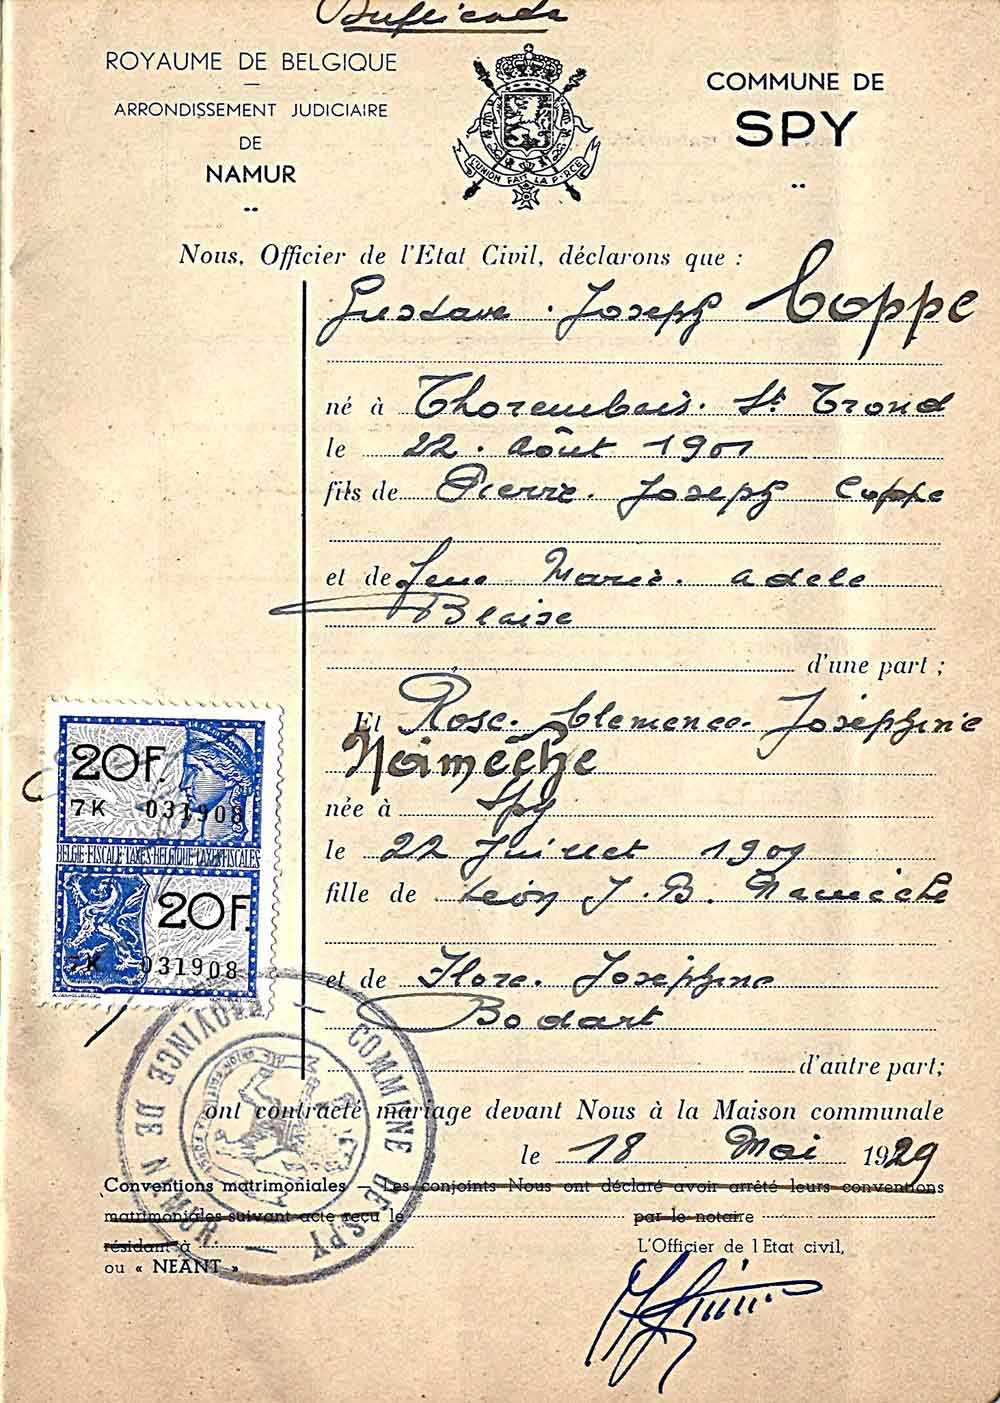 Duplicada
ROYAUME DE BELGIQUE
ARRONDISSEMENT JUDICIAIRE
DE
NAMUR
L'UNION FAIT LA FORCE
COMMUNE DE
SPY
Nous, Officier de l'Etat Civil, déclarons que :
Gustave. Joseph Coppe
né à Thorembais. St Trond
le 22. Août 1901
fils de Pierre. Joseph Coppe
et de Marie. Adele
Blaise
d'une part ;
Et Rose. Clemence. Joséphine
Namêche
née à Spy
le 22 Juillet 1909
fille de Léon J. B. Namêche
et de Flore. Joséphine
Bodart
d'autre part;
ont contracté mariage devant Nous à la Maison communale
le 18 Mai 1929
Conventions matrimoniales — Les conjoints Nous ont déclaré avoir arrêté leurs conventions
matrimoniales suivant acte reçu le par le notaire
résidant à
ou « NEANT »
L'Officier de l'Etat civil,
20F.
7K 031908
BELGIE·FISCALE·TAXES·BELGIQUE·TAXES·FISCALES
20F.
7K 031908
COMMUNE DE SPY
PROVINCE DE NAMUR